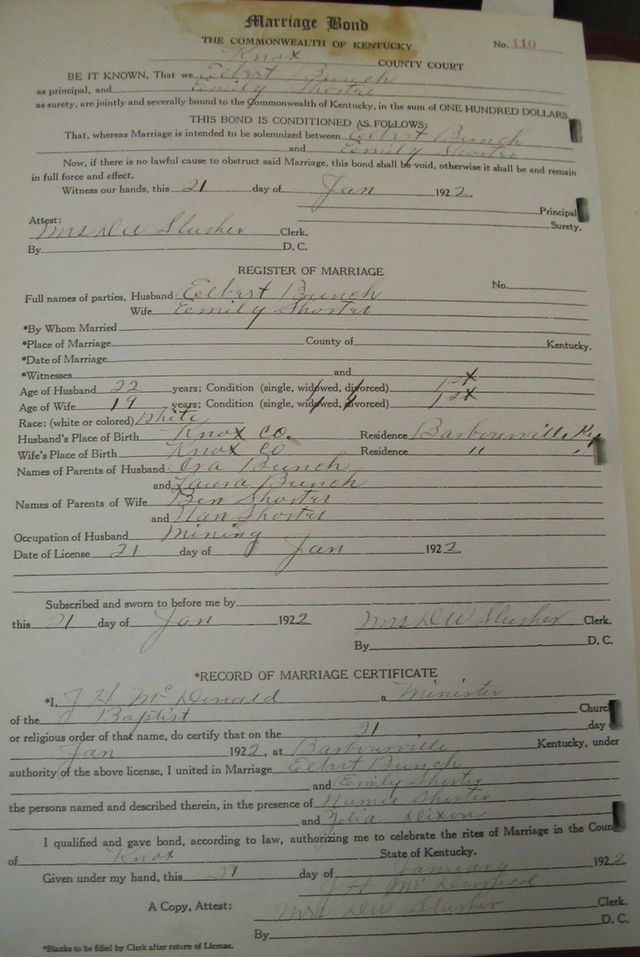 Marriage Bond
THE COMMONWEALTH OF KENTUCKY
No. 110
Knox COUNTY COURT
BE IT KNOWN, That we Elbert Bunch
as principal, and Emily Shorter
as surety, are jointly and severally bound to the Commonwealth of Kentucky, in the sum of ONE HUNDRED DOLLARS.
THIS BOND IS CONDITIONED AS FOLLOWS:
That, whereas Marriage is intended to be solemnized between Elbert Bunch
and Emily Shorter
Now, if there is no lawful cause to obstruct said Marriage, this bond shall be void, otherwise it shall be and remain
in full force and effect.
Witness our hands, this 21 day of Jan 1922
Principal
Surety.
Attest:
Mrs D W Slusher Clerk.
By D. C.
REGISTER OF MARRIAGE
Full names of parties, Husband Elbert Bunch No.
Wife Emily Shorter
*By Whom Married
*Place of Marriage County of Kentucky.
*Date of Marriage
*Witnesses and
Age of Husband 22 years; Condition (single, widowed, divorced) 1st
Age of Wife 19 years; Condition (single, widowed, divorced) 1st
Race: (white or colored) White
Husband's Place of Birth Knox Co. Residence Barbourville, Ky
Wife's Place of Birth Knox Co Residence " "
Names of Parents of Husband Ira Bunch
and Laura Bunch
Names of Parents of Wife Ben Shorter
and Nan Shorter
Occupation of Husband Mining
Date of License 21 day of Jan 1922
Subscribed and sworn to before me by
this 21 day of Jan 1922 Mrs D W Slusher Clerk.
By D. C.
*RECORD OF MARRIAGE CERTIFICATE
*I, J H McDonald a Minister
of the Baptist Churc
or religious order of that name, do certify that on the 21 day
Jan 1922, at Barbourville Kentucky, under
authority of the above license, I united in Marriage Elbert Bunch
and Emily Shorter
the persons named and described therein, in the presence of Shorter
and Dixon
I qualified and gave bond, according to law, authorizing me to celebrate the rites of Marriage in the Coun
of Knox State of Kentucky.
Given under my hand, this 21 day of January 1922
J H
A Copy, Attest: Mrs D W Slusher Clerk.
By D. C.
*Blanks to be filled by Clerk after return of License.